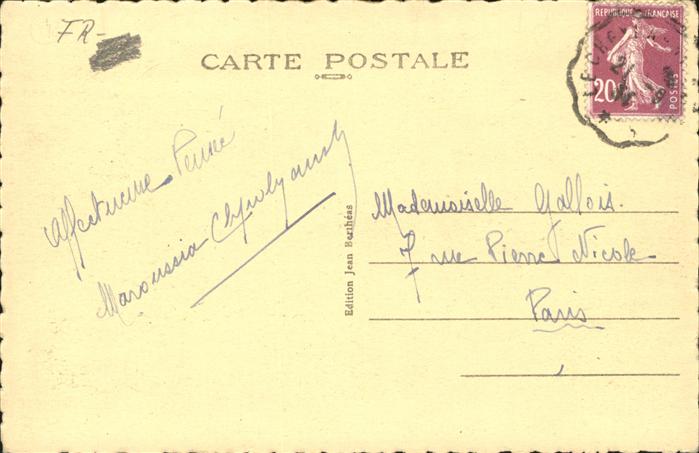 FR-
CARTE POSTALE
REPUBLIQUE FRANÇAISE
20
POSTES
Affectueuse Pensée
Maroussia
Edition Jean Berthéas
Mademoiselle Gallois.
7 rue Pierre Nicole
Paris